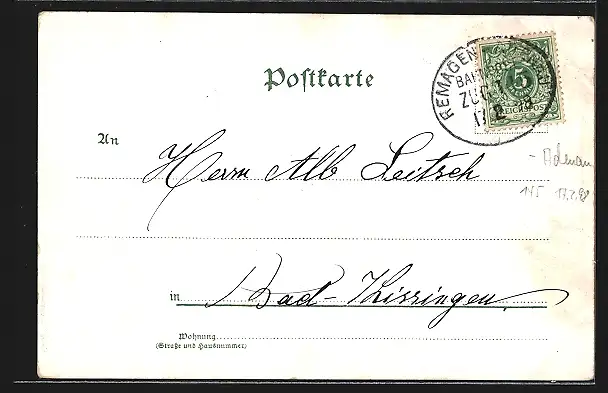 Postkarte
REMAGEN
BAHNPOST
ZUG 1
17 2 98
5
REICHSPOST
An
Herrn Alb Leitsch
- Adenau
145 17.2.98
in Bad-Kissingen.
Wohnung
(Straße und Hausnummer)